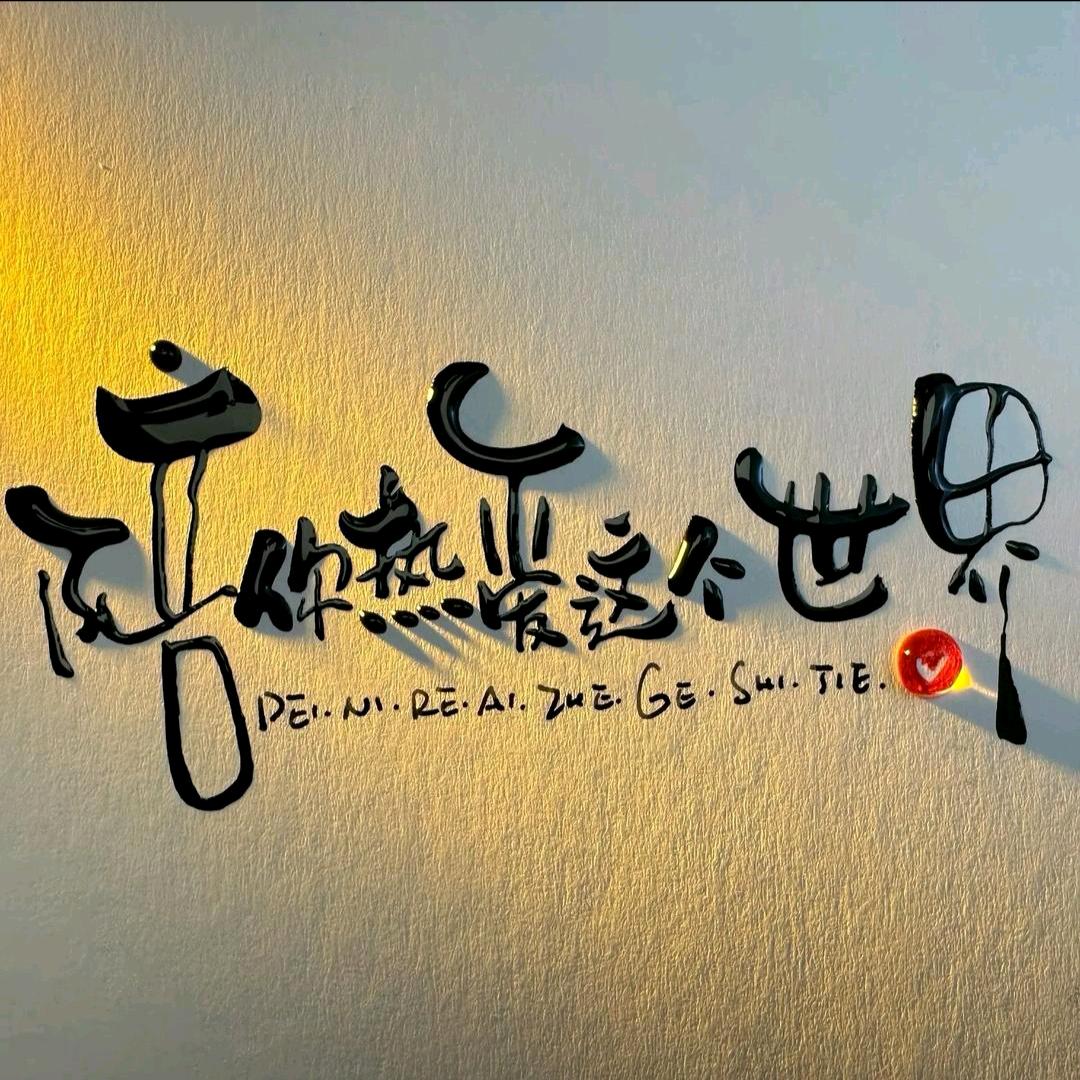 陪你热爱这个世界
PEI. NI. RE. AI. ZHE. GE. SHI. JIE.